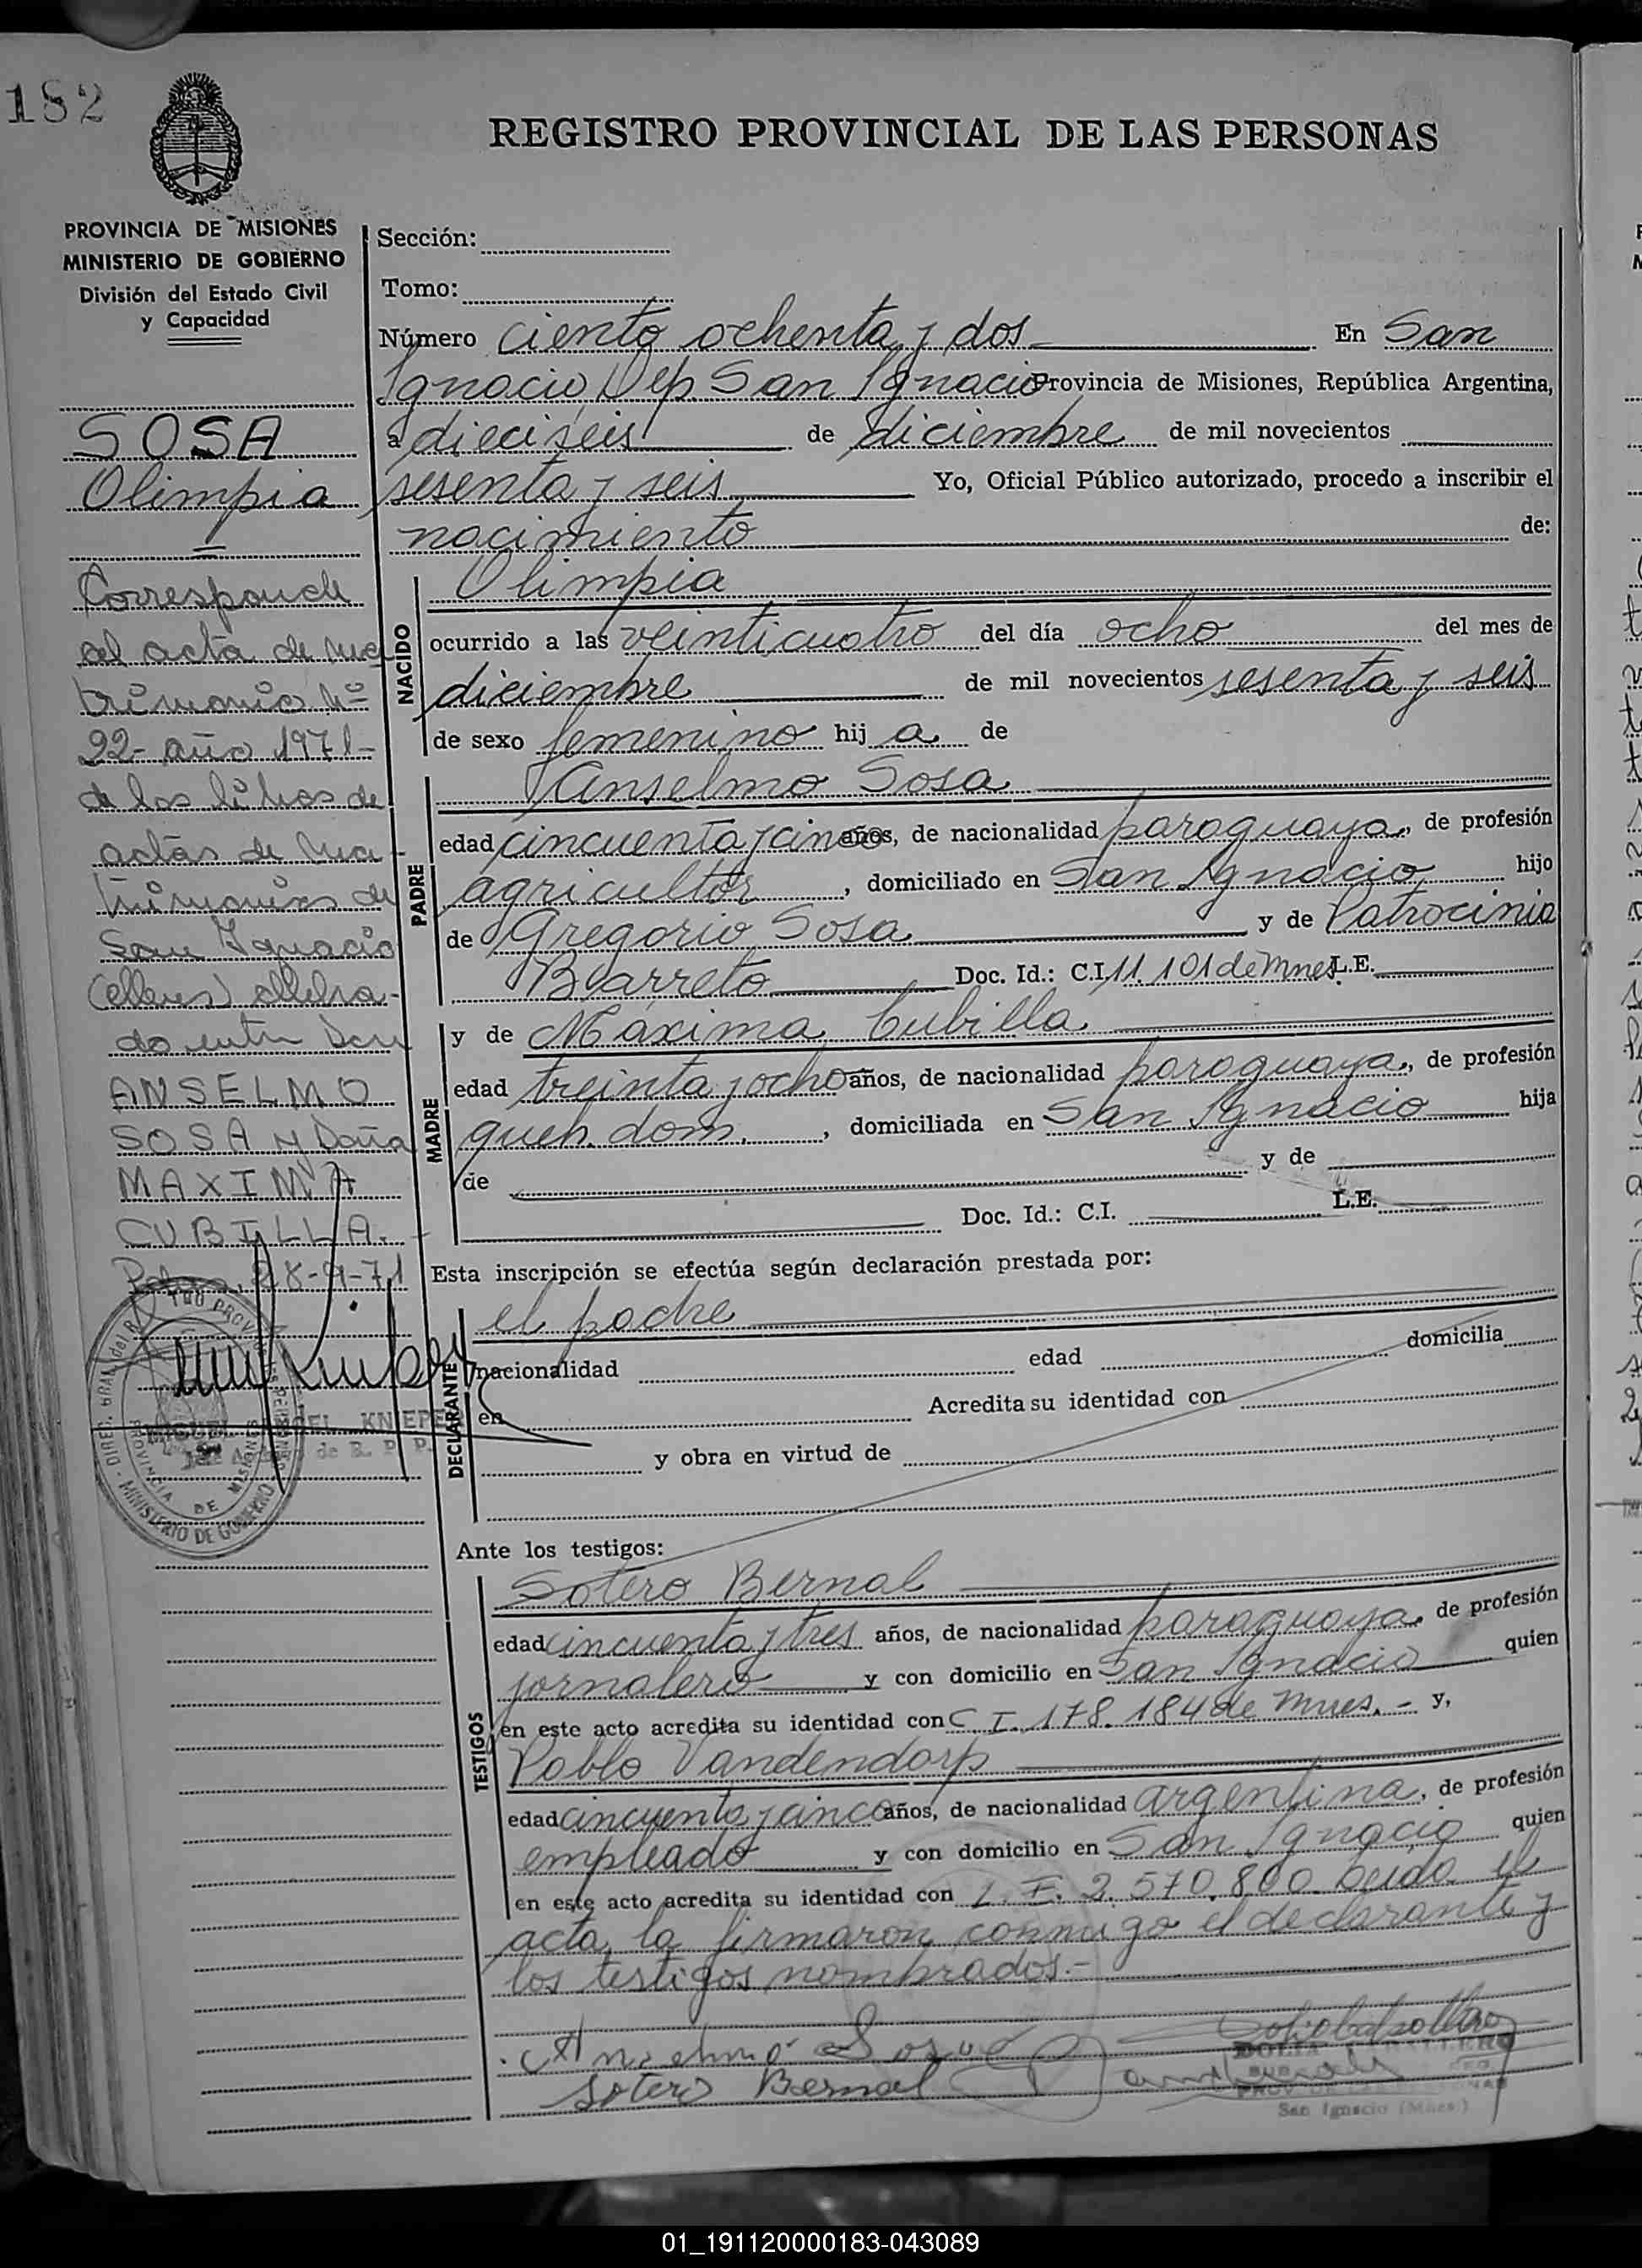 182
REGISTRO PROVINCIAL DE LAS PERSONAS
PROVINCIA DE MISIONES
MINISTERIO DE GOBIERNO
División del Estado Civil
y Capacidad
SOSA
Olimpia
Corresponde
al acta de ma
trimonio Nº
22- año 1971-
de los libros de
actas de ma-
trimonios de
San Ignacio
celebra-
do entre Don
ANSELMO
SOSA y Doña
MAXIMA
CUBILLA.
28-9-71
Sección:
Tomo:
Número ciento ochenta y dos En San
Ignacio Dep. San Ignacio Provincia de Misiones, República Argentina,
a dieciseis de diciembre de mil novecientos
sesenta y seis Yo, Oficial Público autorizado, procedo a inscribir el
nacimiento de:
NACIDO
Olimpia
ocurrido a las veinticuatro del día ocho del mes de
diciembre de mil novecientos sesenta y seis
de sexo femenino hij a de
PADRE
Anselmo Sosa
edad cincuenta y cinco años, de nacionalidad paraguaya, de profesión
agricultor, domiciliado en San Ignacio hijo
de Gregorio Sosa y de Patrocinia
Barreto Doc. Id.: C.I. 11.101 de Mnes. L.E.
MADRE
y de Máxima Cubilla
edad treinta y ocho años, de nacionalidad paraguaya, de profesión
queh. dom., domiciliada en San Ignacio hija
de y de
Doc. Id.: C.I. L.E.
Esta inscripción se efectúa según declaración prestada por:
DECLARANTE
el padre
nacionalidad edad domicilia
en Acredita su identidad con
y obra en virtud de
Ante los testigos:
TESTIGOS
Sotero Bernal
edad cincuenta y tres años, de nacionalidad paraguaya, de profesión
jornalero y con domicilio en San Ignacio quien
en este acto acredita su identidad con C. I. 178.184 de Mnes.- y,
Pablo Vandendorp
edad cincuenta y cinco años, de nacionalidad argentina, de profesión
empleado y con domicilio en San Ignacio quien
en este acto acredita su identidad con L. E. 2.570.800. Leida el
acta, la firmaron conmigo el declarante y
los testigos nombrados.-
Anselmo Sosa
Sotero Bernal
San Ignacio (Mnes.)
MINISTERIO DE GOBIERNO
PROVINCIA DE MISIONES
01_191120000183-043089